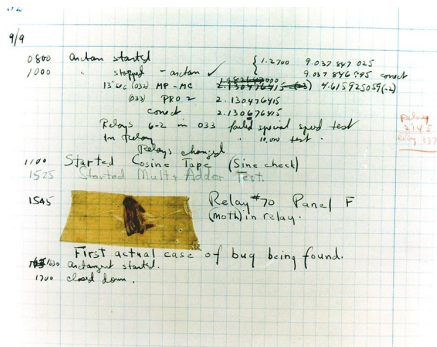 9/9
0800 antan started
1000 " stopped - antan ✓ { 1.2700 9.037 847 025
9.037 846 995 conect
13"uc (032) MP - MC 2.130476415 4.615925059(-2)
(033) PRO 2 2.130476415
conect 2.130676415
Relays 6-2 in 033 failed special speed test
in Relay " 10,000 test.
Relays changed
Relay
1100 Started Cosine Tape (Sine check)
1525 Started Mult + Adder Test.
1545 Relay #70 Panel F
(moth) in relay.
First actual case of bug being found.
antangent started.
1700 closed down.